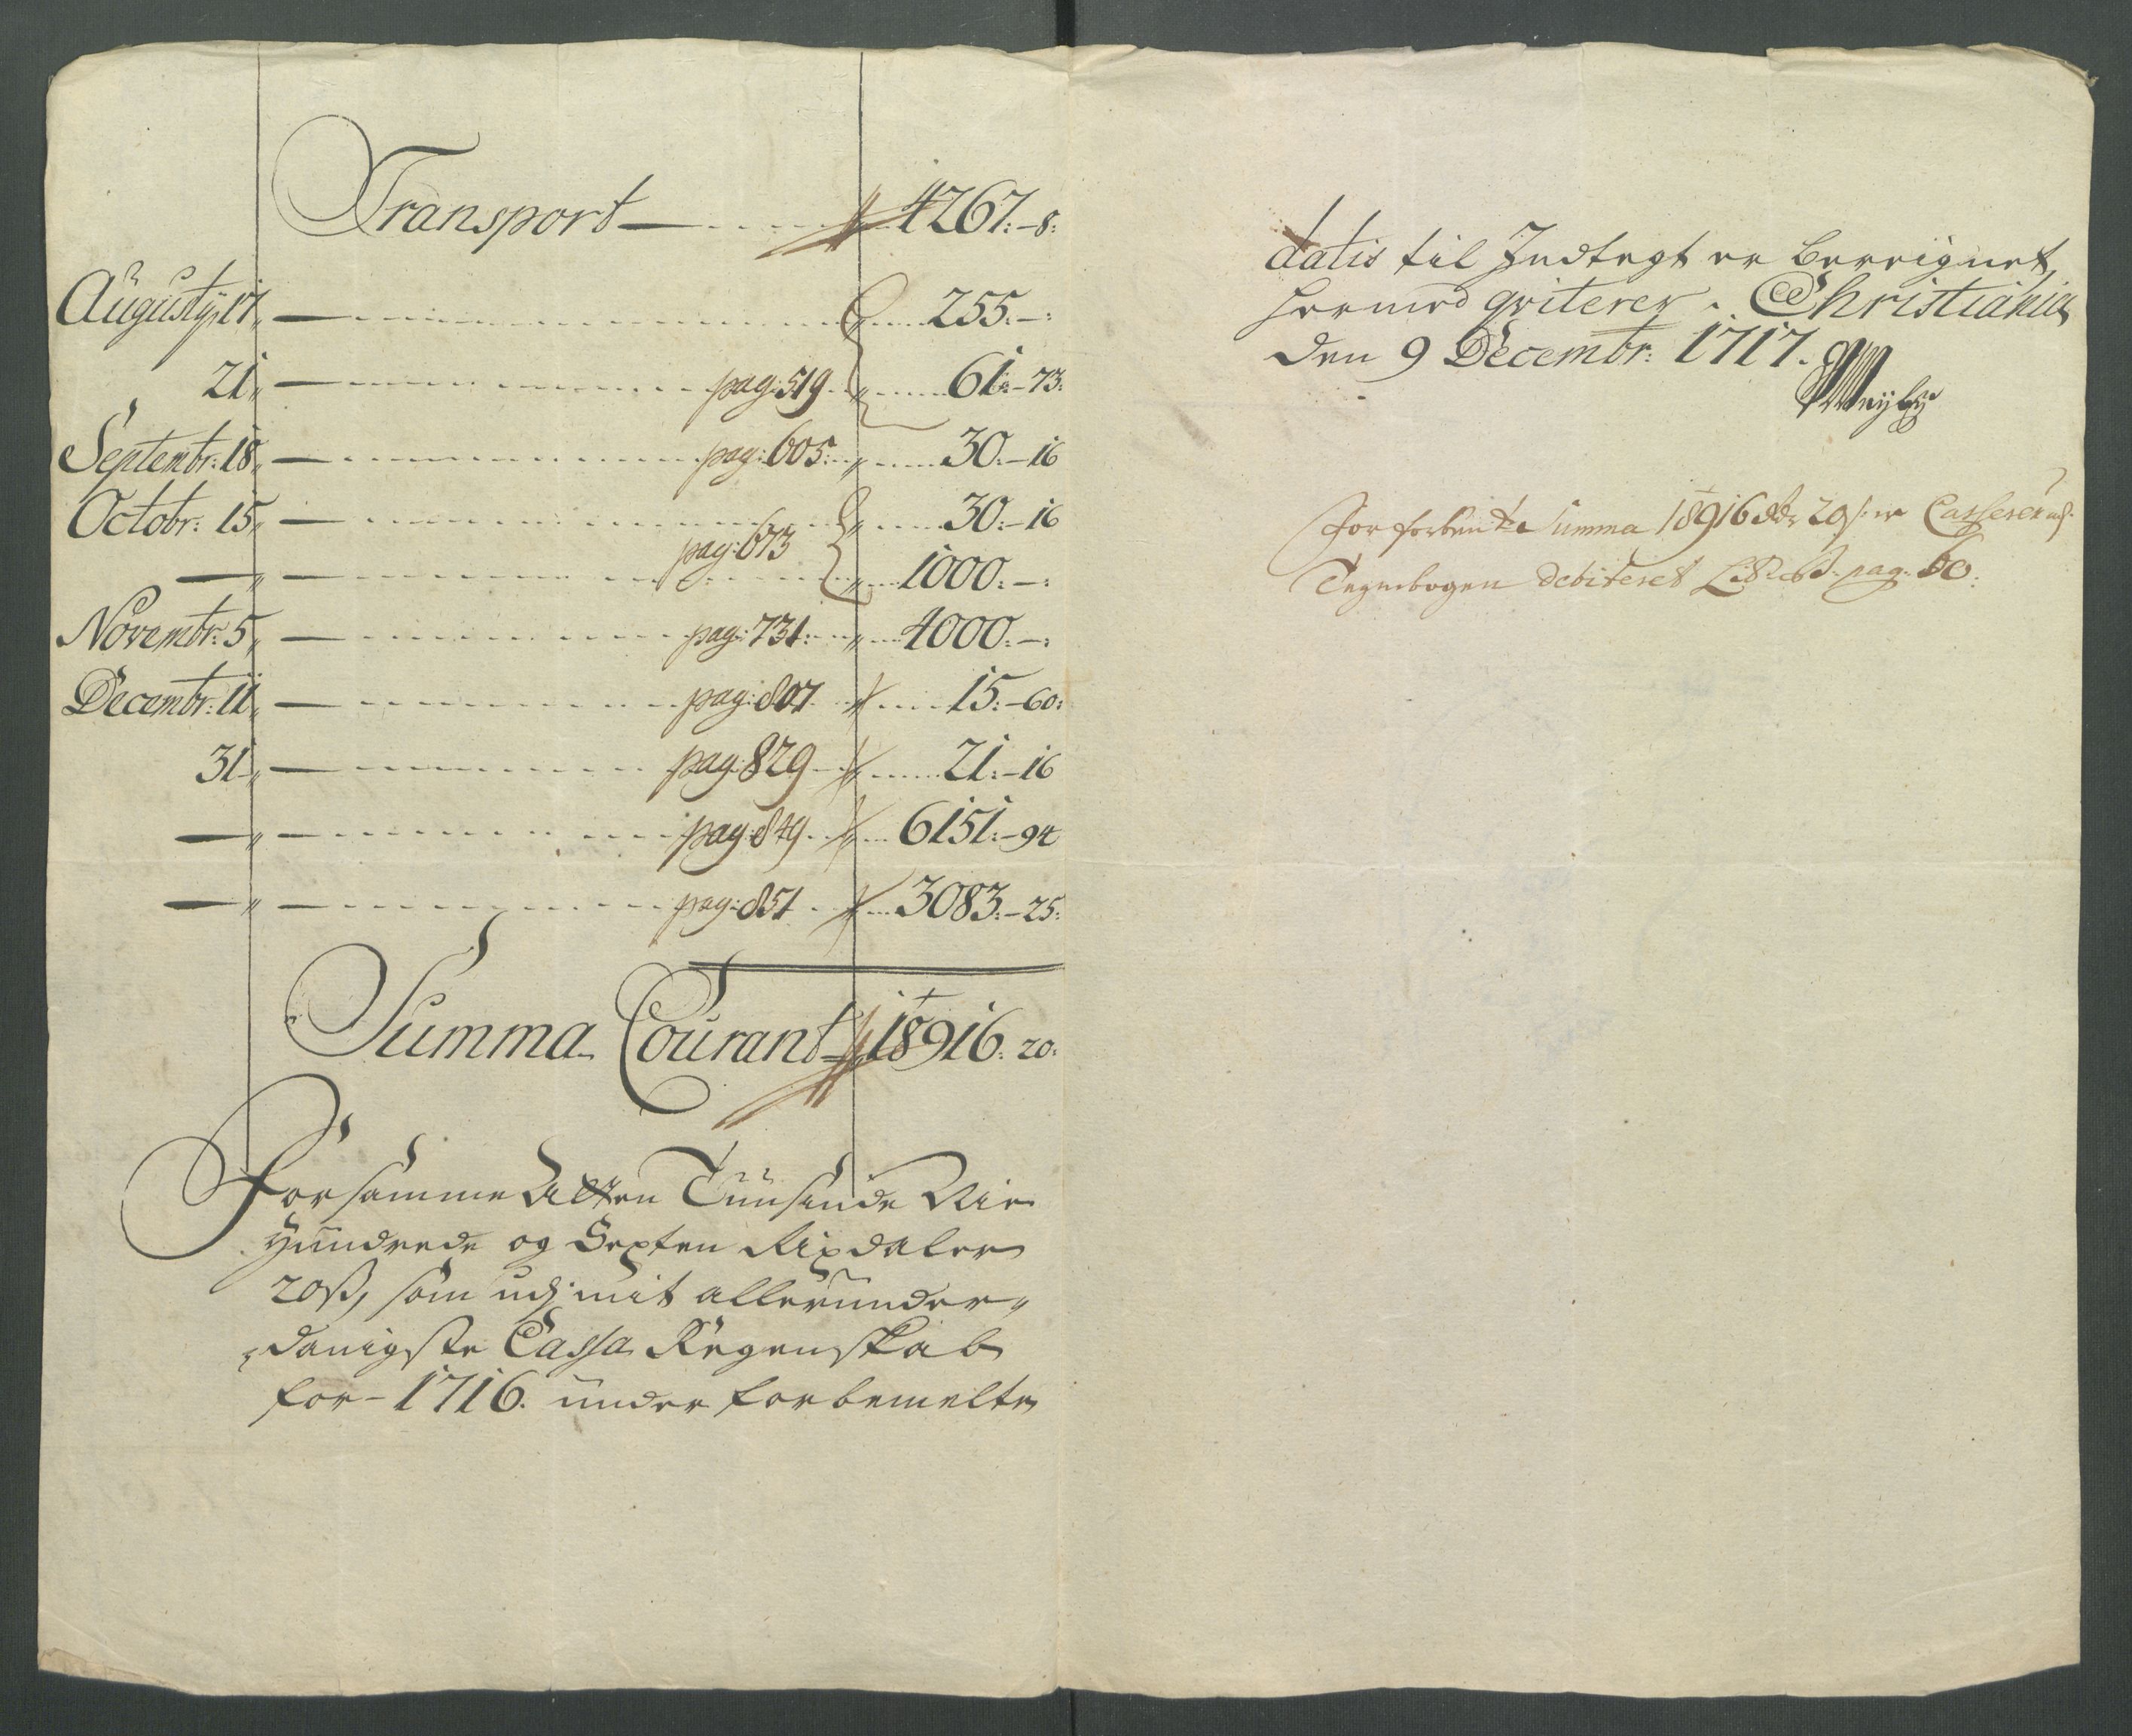 Transport — 4267:-8:
Augusty 17 — 255:-:
21 — pag: 519 — 61:-73:
Septembr: 18 — pag: 605: — 30:-16
Octobr: 15 — 30:-16
— pag: 673 — 1000:-:
Novembr: 5 — pag: 731: — 4000:-:
Decembr: 11 — pag: 807 — 15:-60:
31 — pag: 829 — 21:-16
— pag: 849 — 6151:-94
— pag: 851 — 3083:-25:
Summa Courant 18916: 20:
For samme Atten Tuusinde Nie
Hundrede og Sexten Rixdaler
20ß, som udj mit allerunder„
„danigste Cassa Regenskab
for - 1716. under forbemelte
datis til Indtegt er bereignet,
hermed qviterer. Christiania
den 9 Decembr: 1717.
For forben:te Summa 18916 Rdr 20 ß: er Casserer udj
Tegnebogen debiteret pag: 60: